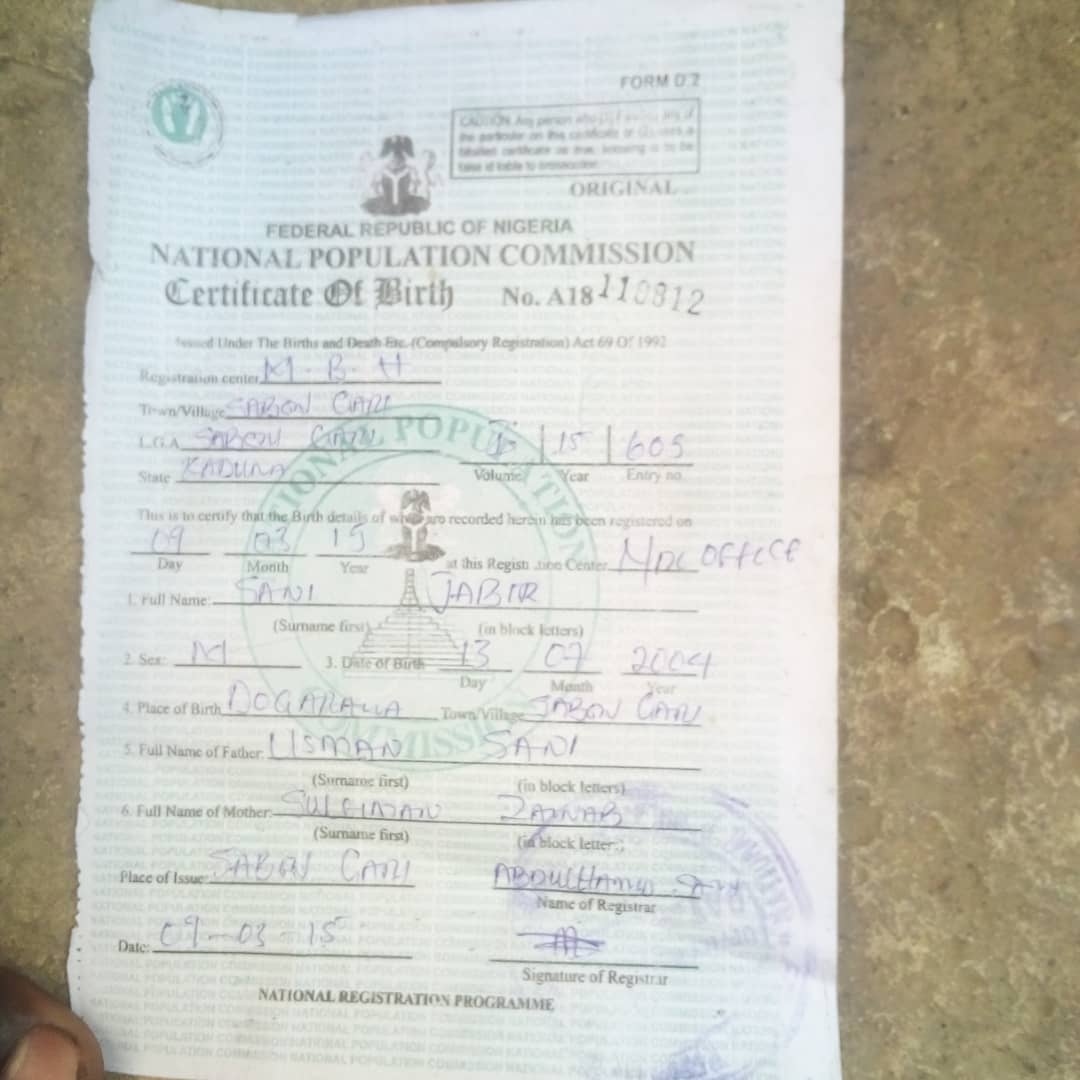 FORM D.7
CAUTION Any person who
the particular on this certificate or (2) uses a
falsified certificate as true, knowing is to be
false is liable to prosecution
ORIGINAL
FEDERAL REPUBLIC OF NIGERIA
NATIONAL POPULATION COMMISSION
Certificate Of Birth No. A18 110812
Issued Under The Births and Death Etc. (Compulsory Registration) Act 69 Of 1992
Registration center M. B. H
Town/Village SABON GARI
L.G.A SABON GARI 15 605
State KADUNA Volume Year Entry no.
This is to certify that the Birth details of are recorded herein has been registered on
09 03 15 at this Registration Center NPC OFFICE
Day Month Year
1. Full Name: SANI JABIR
(Surname first) (in block letters)
2. Sex: M 3. Date of Birth 13 07 2004
Day Month Year
4. Place of Birth DOGARAWA Town/Village SABON GARI
5. Full Name of Father: USMAN SANI
(Surname first) (in block letters)
6. Full Name of Mother: SULEIMAN ZAINAB
(Surname first) (in block letters)
Place of Issue: SABON GARI ABDULHAMID SANI
Name of Registrar
Date: 09-03-15
Signature of Registrar
NATIONAL REGISTRATION PROGRAMME